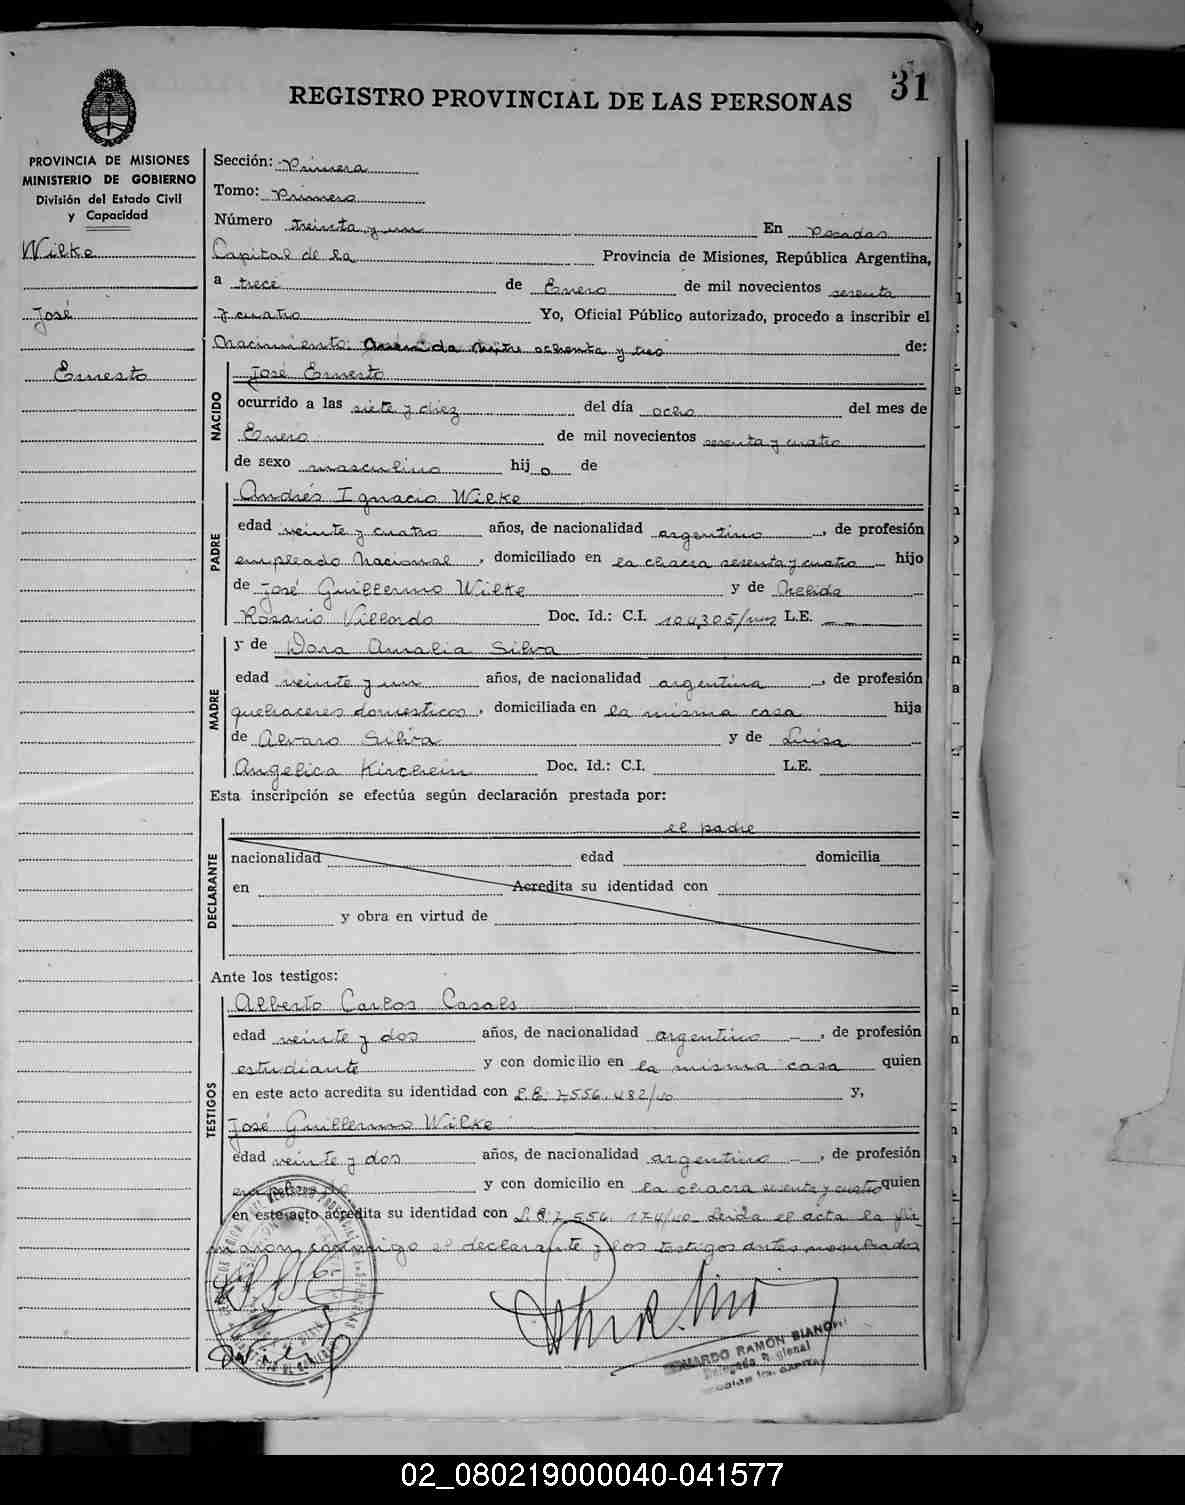 31
REGISTRO PROVINCIAL DE LAS PERSONAS
PROVINCIA DE MISIONES
MINISTERIO DE GOBIERNO
División del Estado Civil
y Capacidad
Wilke
José
Ernesto
Sección: Primera
Tomo: Primero
Número treinta y un En Posadas
Capital de la Provincia de Misiones, República Argentina,
a trece de Enero de mil novecientos sesenta
y cuatro Yo, Oficial Público autorizado, procedo a inscribir el
Nacimiento: Avenida Mitre ochenta y tres de:
NACIDO
José Ernesto
ocurrido a las siete y diez del día ocho del mes de
Enero de mil novecientos sesenta y cuatro
de sexo masculino hijo de
PADRE
Andrés Ignacio Wilke
edad veinte y cuatro años, de nacionalidad argentino, de profesión
empleado Nacional, domiciliado en la chacra sesenta y cuatro hijo
de José Guillermo Wilke y de Nelida
Rosario Villordo Doc. Id.: C.I. 104.305/mns L.E. — —
MADRE
y de Dora Amalia Silva
edad veinte y un años, de nacionalidad argentina, de profesión
quehaceres domesticos, domiciliada en la misma casa hija
de Alvaro Silva y de Luisa
Angelica Kirchein Doc. Id.: C.I. L.E.
Esta inscripción se efectúa según declaración prestada por:
DECLARANTE
el padre
nacionalidad edad domicilia
en Acredita su identidad con
y obra en virtud de
Ante los testigos:
TESTIGOS
Alberto Carlos Casals
edad veinte y dos años, de nacionalidad argentino, de profesión
estudiante y con domicilio en la misma casa quien
en este acto acredita su identidad con L.E: 7.556.482/40 y,
José Guillermo Wilke
edad veinte y dos años, de nacionalidad argentino, de profesión
empleado y con domicilio en la chacra sesenta y cuatro quien
en este acto acredita su identidad con L.E: 7.556.174/40 Leida el acta la fir
maron conmigo el declarante y los testigos antes nombrados
EDUARDO RAMON BIANCHI
Delegado Regional
02_080219000040-041577